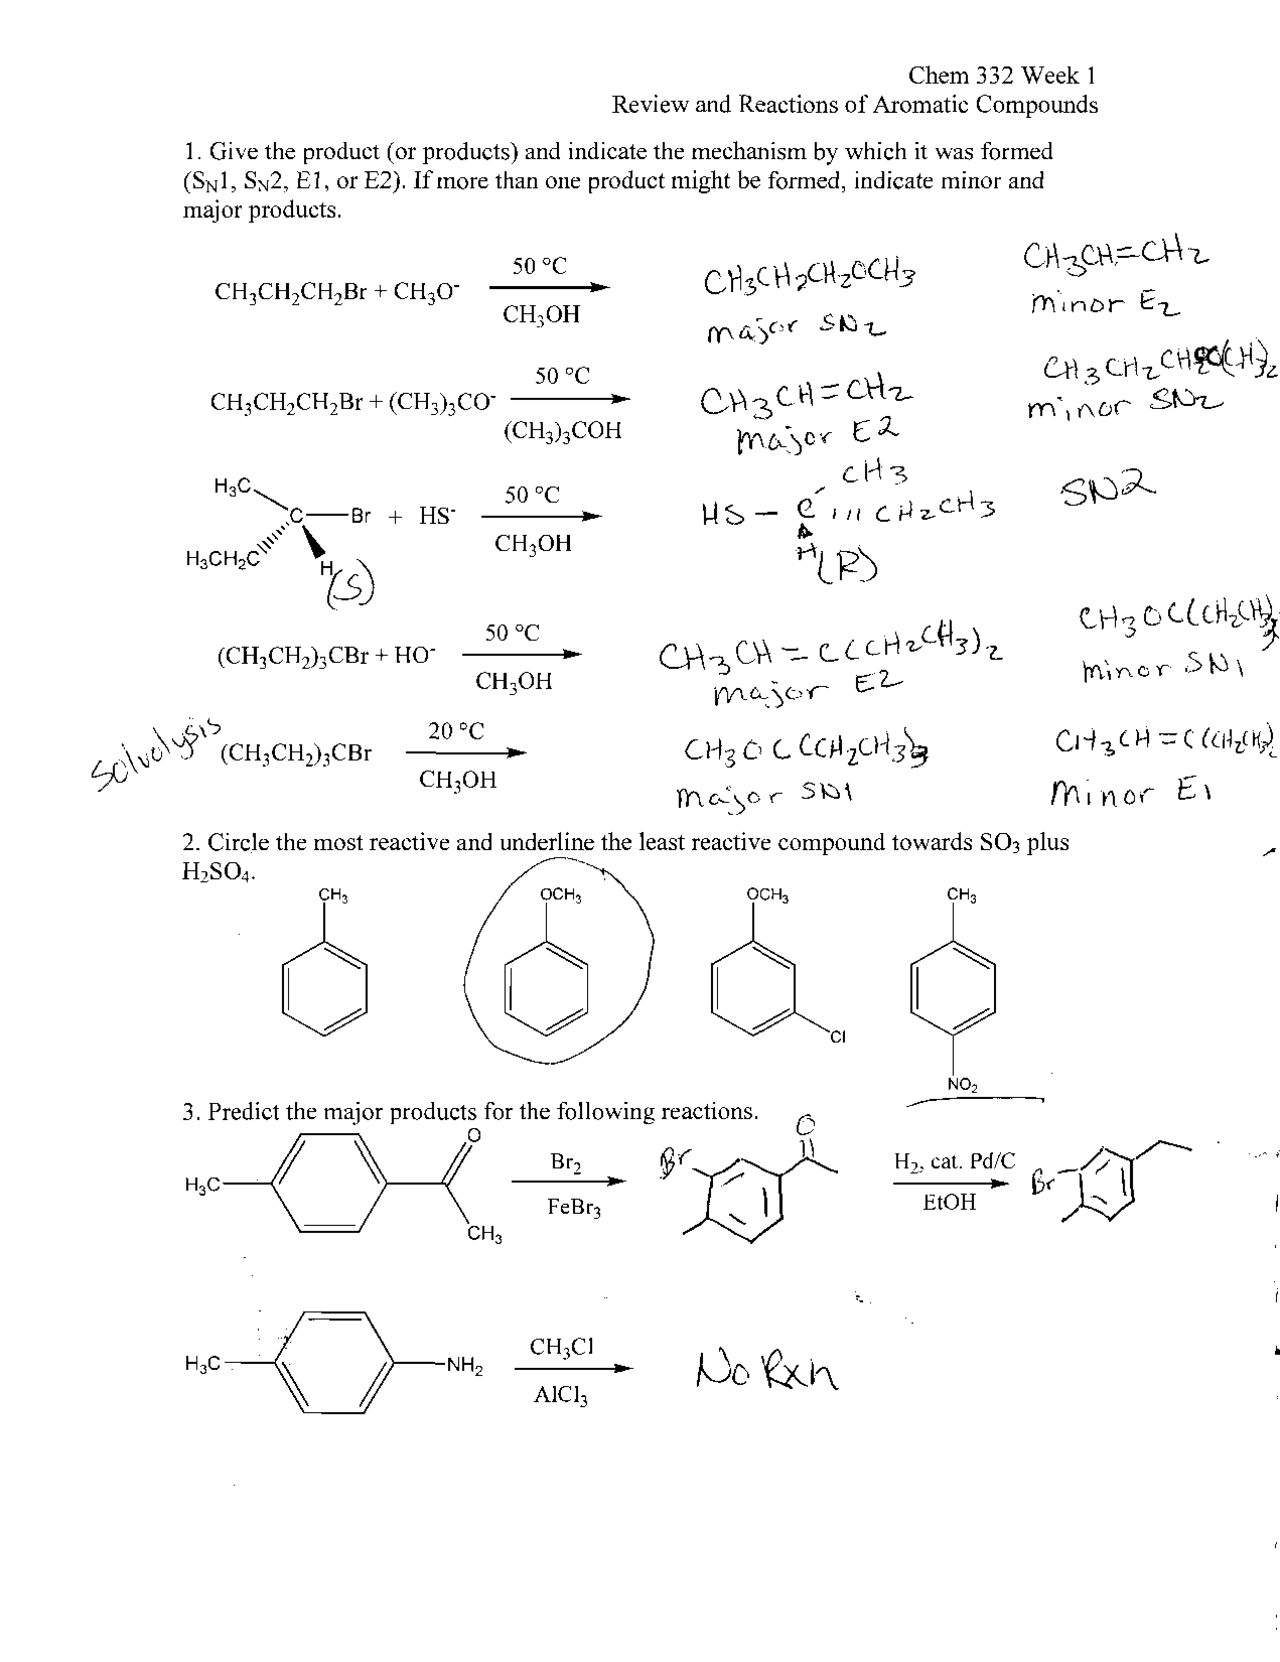 Chem 332 Week 1
Review and Reactions of Aromatic Compounds
1. Give the product (or products) and indicate the mechanism by which it was formed
(SN1, SN2, E1, or E2). If more than one product might be formed, indicate minor and
major products.
CH3CH2CH2Br + CH3O- 50 °C CH3OH CH3CH2CH2OCH3 CH3CH=CH2
major SN2 minor E2
CH3CH2CH2Br + (CH3)3CO- 50 °C (CH3)3COH CH3CH=CH2
major E2 minor SN2
H3C C Br + HS- 50 °C CH3OH HS - C CH3 CH2CH3 SN2
H3CH2C H H (R)
(S)
(CH3CH2)3CBr + HO- 50 °C CH3OH CH3CH=C(CH2CH3)2 CH3OC(CH2CH3)3
major E2 minor SN1
Solvolysis (CH3CH2)3CBr 20 °C CH3OH CH3OC(CH2CH3)3 CH3CH=C(CH2CH3)2
major SN1 Minor E1
2. Circle the most reactive and underline the least reactive compound towards SO3 plus
H2SO4.
CH3 OCH3 OCH3 CH3
Cl
NO2
3. Predict the major products for the following reactions.
H3C O CH3 Br2 FeBr3 Br O H2, cat. Pd/C EtOH Br
H3C NH2 CH3Cl AlCl3 No Rxn